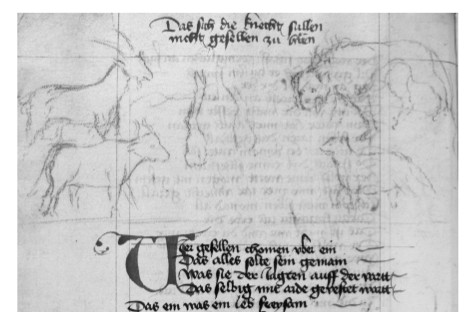 Das sich die knecht sullen
nicht gesellen zu
Vier gesellen chomen vber ein
Das alles solte sein gemain
Was sie der iagten auff der
Das selbig mit aide
Das ein was ein leb freysam